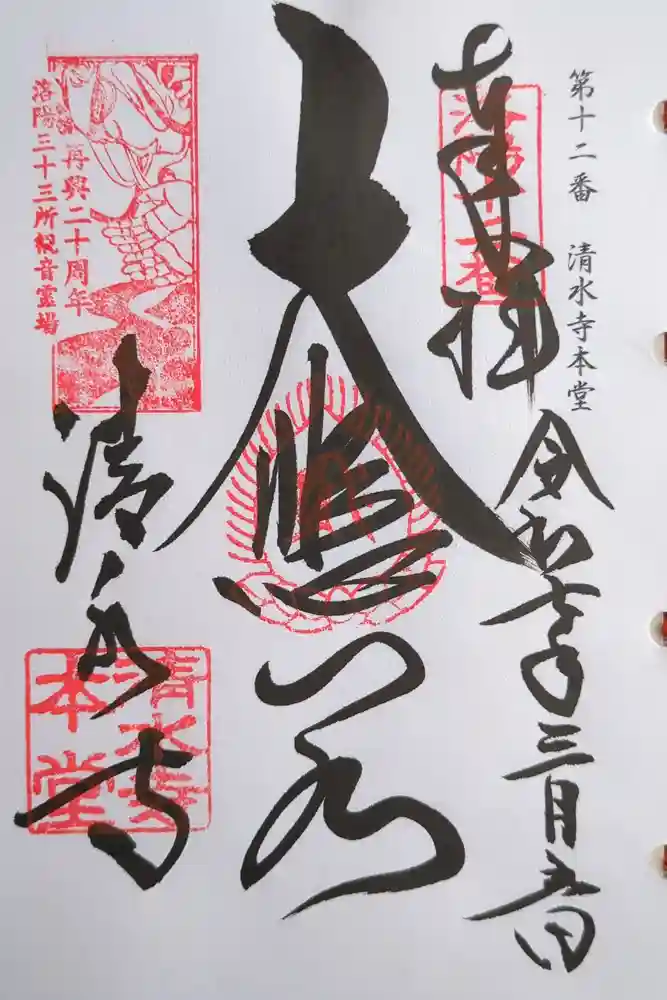 第十二番 清水寺本堂
奉拝
洛陽十二番
令和七年三月
大悲閣
再興二十周年
洛陽三十三所観音霊場
清水寺
清水寺
本堂